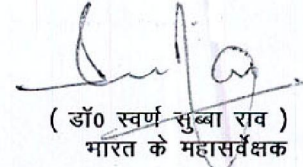 ( डॉ0 स्वर्ण सुब्बा राव )
भारत के महासर्वेक्षक